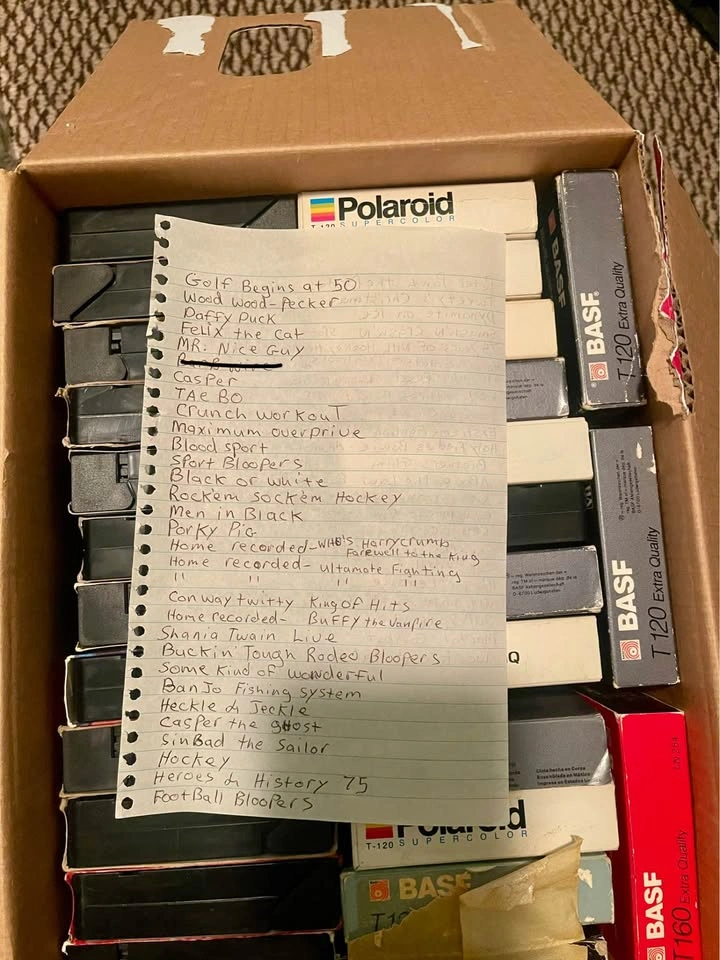 Polaroid
T-120 SUPERCOLOR
BASF
T 120 Extra Quality
Golf Begins at 50
Wood wood-pecker
Daffy Duck
Felix the Cat
MR. Nice Guy
Casper
TAe BO
Crunch workout
Maximum overprive
Blood sport
Sport Bloopers
Black or white
Rock'em sock'em Hockey
Men in Black
Porky Pig
Home recorded - WHO's Harrycrumb
Farewell to the King
Home recorded - ultamate Fighting
" " " "
Conway twitty King of Hits
Home recorded - Buffy the vanpire
Shania Twain Live
Buckin' Tough Rodeo Bloopers
Some Kind of wonderful
BanJo Fishing system
Heckle & Jeckle
Casper the ghost
SinBad the Sailor
Hockey
Heroes & History 75
FootBall Bloopers
BASF
T 120 Extra Quality
Q
Polaroid
T-120 SUPERCOLOR
BASF
BASF
T 160 Extra Quality